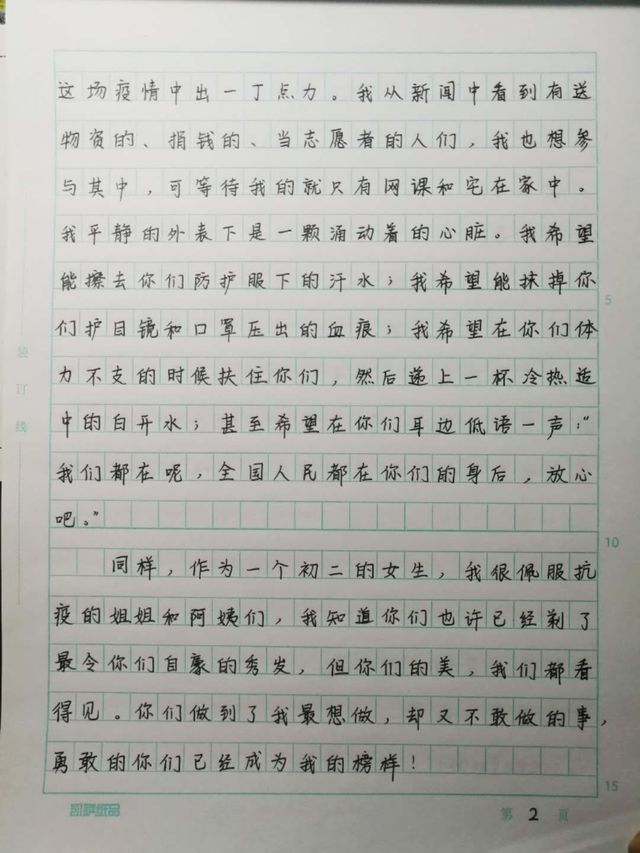 这场疫情中出一丁点力。我从新闻中看到有送
物资的、捐钱的、当志愿者的人们，我也想参
与其中，可等待我的就只有网课和宅在家中。
我平静的外表下是一颗涌动着的心脏。我希望
能擦去你们防护服下的汗水；我希望能抹掉你
们护目镜和口罩压出的血痕；我希望在你们体
力不支的时候扶住你们，然后递上一杯冷热适
中的白开水；甚至希望在你们耳边低语一声：“
我们都在呢，全国人民都在你们的身后，放心
吧。”
同样，作为一个初二的女生，我很佩服抗
疫的姐姐和阿姨们，我知道你们也许已经剃了
最令你们自豪的秀发，但你们的美，我们都看
得见。你们做到了我最想做，却又不敢做的事，
勇敢的你们已经成为我的榜样！
5
10
15
装订线
凯萨纸品
第 2 页